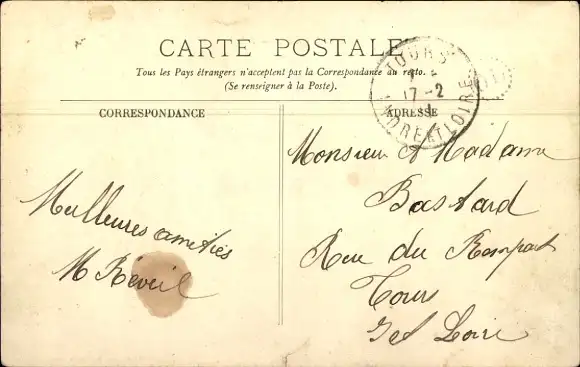 CARTE POSTALE
Tous les Pays étrangers n'acceptent pas la Correspondance au recto.
(Se renseigner à la Poste).
CORRESPONDANCE
ADRESSE
TOURS
17-2
INDRE ET LOIRE
Meilleures amitiés
M Réveil
Monsieur et Madame
Bastard
Rue du Rempart
Tours
I et Loire